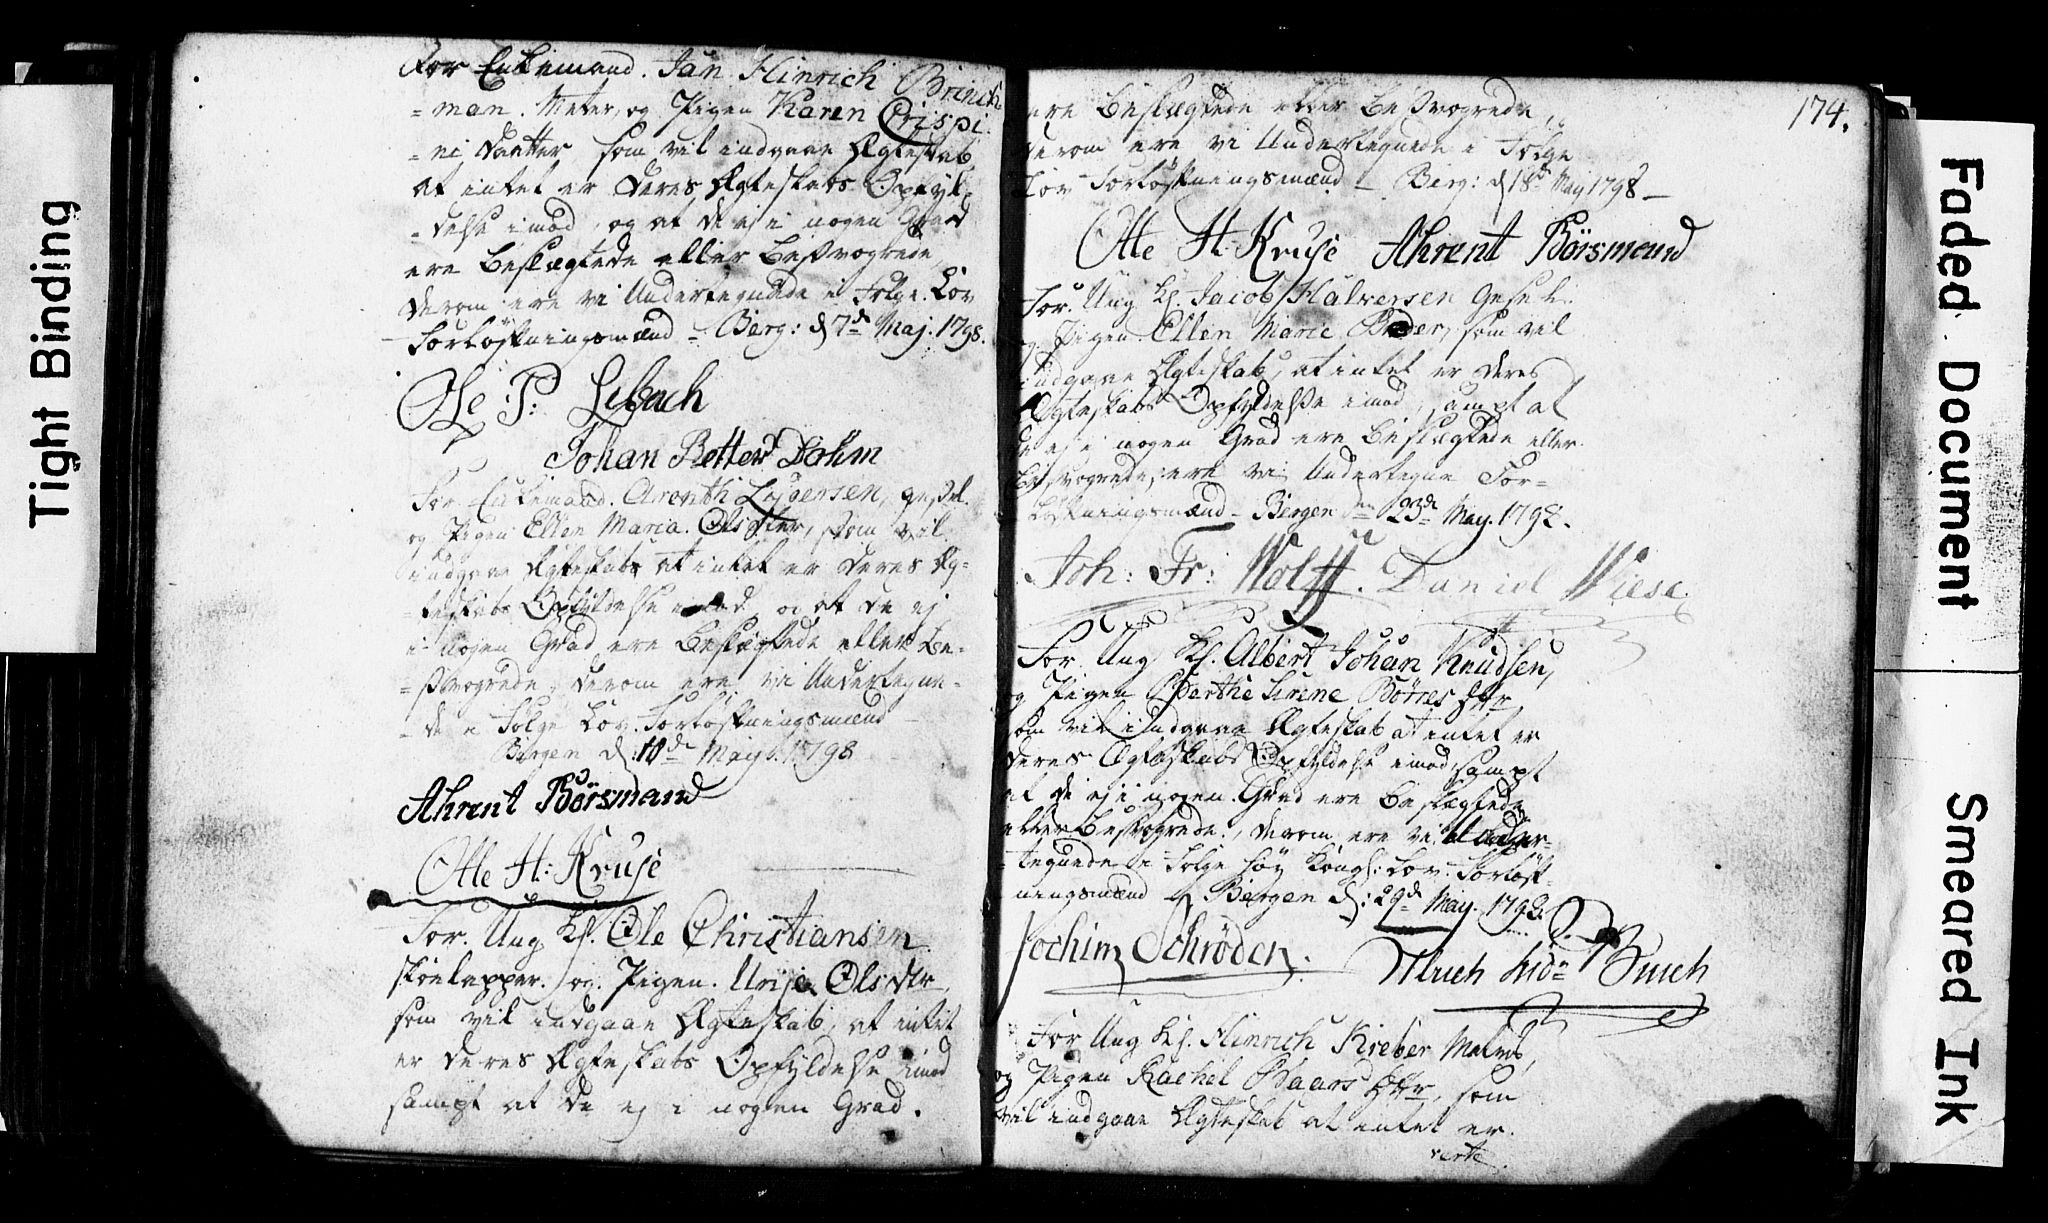 Tight Binding
For Enkemand. Jan Hinrich Brinck
= man. Meter, og Pigen Karen Crispi
= nj Daatter, som vil indgaae Ægteskab,
at intet er deres Ægteskabs Opfyl=
= delse imod, og at de ej i nogen Grad
ere beslægtede eller besvogrede,
derom ere vi Undertegnede i Følge Lov
Forløftningsmænd – Berg: d 7de Maj. 1798.
Ole P: Lebach
Johan Retter Dohm
For Enkemand. Arenth, gesel.
og Pigen Ellen Maria Olsdter, som vil
indgaae Ægteskab at intet er deres Æg=
= teskabs Opfyldelse imod, og at de ej
i nogen Grad ere beslægtede eller be=
= svogrede, derom ere vi Undertegne=
= de i Følge Lov Forløftningsmænd
Bergen d: 10de Maij. 1798
Ahrent Börsmand
Otte H: Kruse
For Ung Kl. Ole Christiansen
skoelapper. og Pigen. Unje Olsdtr,
som vil indgaae Ægteskab, at intet
er deres Ægteskabs Opfyldelse imod
sampt at de ej i nogen Grad.
174.
ere beslægtede eller besvogrede,
derom ere vi Undertegnede i Følge
Lov Forløftningsmænd – Berg: d 18de Maj 1798 –
Otte H: Kruse Ahrent Börsmand
For. Ung Kl. Jacob Halversen Gesel.
og Pigen Ellen Marie, som vil
indgaae Ægteskab, at intet er deres
Ægteskabs Opfyldelse imod, sampt at
de ej i nogen Grad ere beslægtede eller
besvogrede, ere vi Undertegne For=
løftningsmænd – Bergen den 23de May. 1798.
Joh: Fr: Wolff. Daniel Wiese.
For Ung Kl. Albert Johan Knudsen,
og Pigen Berthe Sirene Börres Dtr
som vil indgaae Ægteskab at intet er
deres Ægteskabs Opfyldelse imod, sampt
at de ej i nogen Grad ere beslægtede
eller besvogrede, derom ere vi Under=
= tegnede i Følge høy Kongl: Lov Forløft=
ningsmænd Bergen d: 29de May 1798.
Jochim Schrøder. Ulrich Lud: Buch
For Ung Kl. Hinrich Krieber Matros,
og Pigen Rachel Baars Dtr, som
vil indgaae Ægteskab at intet er.
verte
Faded Document
Smeared Ink